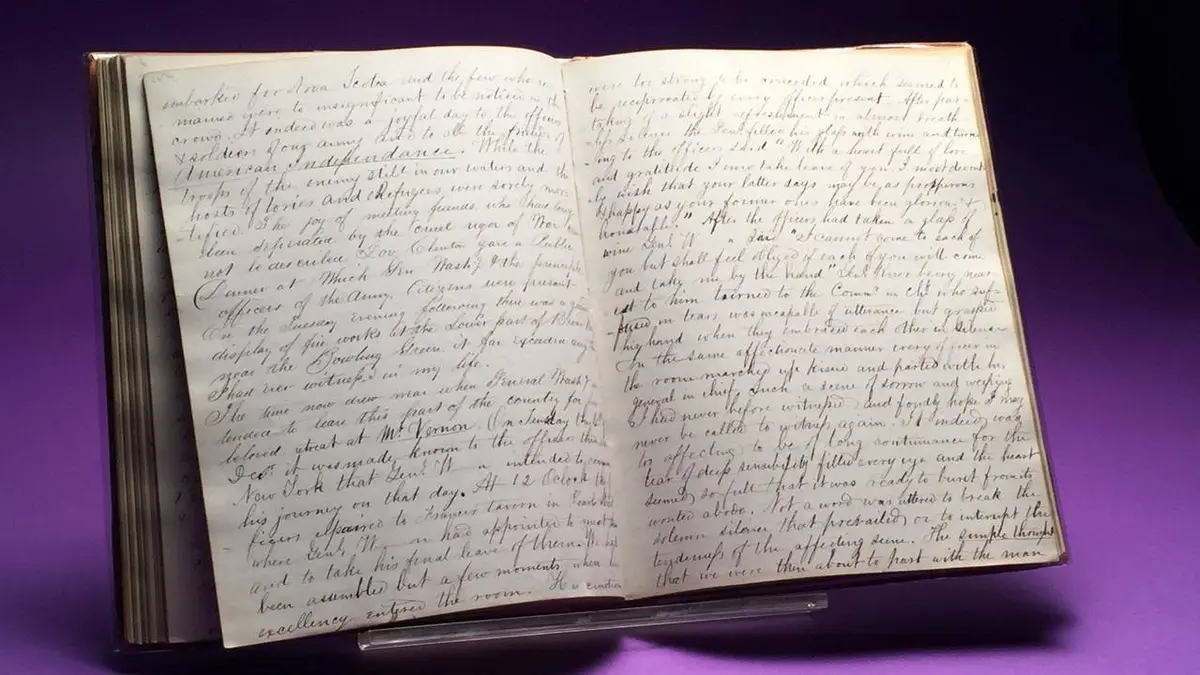 embarked for Nova Scotia and the few who re
mained were to insignificant to be noticed in the
crowd. It indeed was a joyful day to the officers
& soldiers of our army and to all the friends of
American Independance. While the
troops of the enemy still in our waters and the
hosts of tories and Refugees were sorely mor
-tified. The joy of meeting friends, who had long
been seperated by the cruel rigor of War
not be described. Gov. Clinton gave a Public
Dinner at Which Gen. Wash & the principle
officers of the Army, Citizens were present
On the Tuesday Evening following there was a
display of fire works at the Lower part of Broad
near the Bowling Green it far exceeded any
I had ever witnessed in my life.
The time now drew near when General Wash
tended to leave this part of the country for
beloved retreat at Mt. Vernon. On Tuesday the
Decr. it was made known to the officers then
New York that Genl. W n intended to
his journey on that day. At 12 Oclock the
- ficers repaired to Francis tavern in Pearl
where Genl. W n had appointed to meet
and to take his final leave of them. We had
been assembled but a few moments when his
excellency entered the room. His emotion
were too strong to be concealed which seemed to
be reciprocated by every officer present. After par-
taking of a slight refreshment in almost breath
-less silence the Genl. filled his glass with wine and turn
-ing to the officers said "With a heart full of love
and gratitude I now take leave of you. I most devout
-ly wish that your latter days may be as prosperous
& happy as your former ones have been glorious &
honorable." After the officers had taken a glass of
wine Genl. W n said "I cannot come to each of
you but shall feel obliged if each of you will come
and take me by the hand" Genl. Knox being near
-est to him turned to the Comm. in Chf. who suf-
-fused in tears was incapable of utterance but grasped
his hand when they embraced each other in silence
In the same affectionate manner every officer in
the room marched up kissed and parted with his
general in chief. Such a scene of sorrow and weeping
I had never before witnessed and fondly hope I may
never be called to witness again. It indeed was
too affecting to be of long continuance for the
tear of deep sensibility filled every eye and the heart
seemed so full that it was ready to burst from its
wonted abode. Not a word was uttered to break the
solemn silence that prevailed or to interrupt the
tenderness of the affecting scene. The simple thought
that we were then about to part with the man